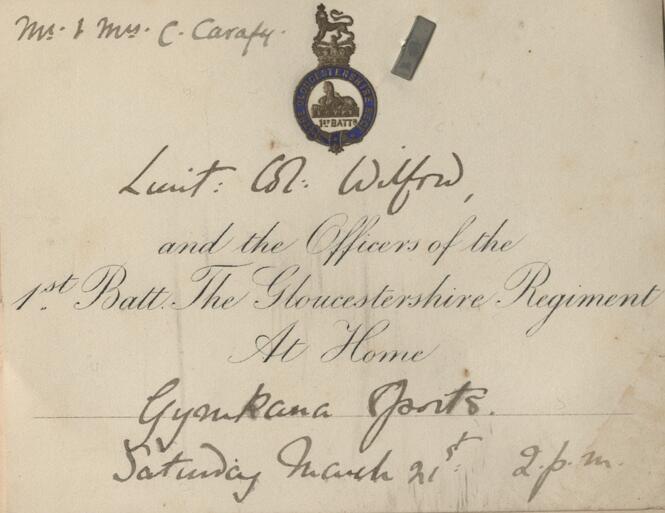 Mr. & Mrs. C. Carafy.
THE GLOUCESTERSHIRE REGT
1ST BATTN
Lieut: Col: Wilford,
and the Officers of the
1st. Batt. The Gloucestershire Regiment
At Home
Gymkana Sports.
Saturday March 21st. 2.p.m.